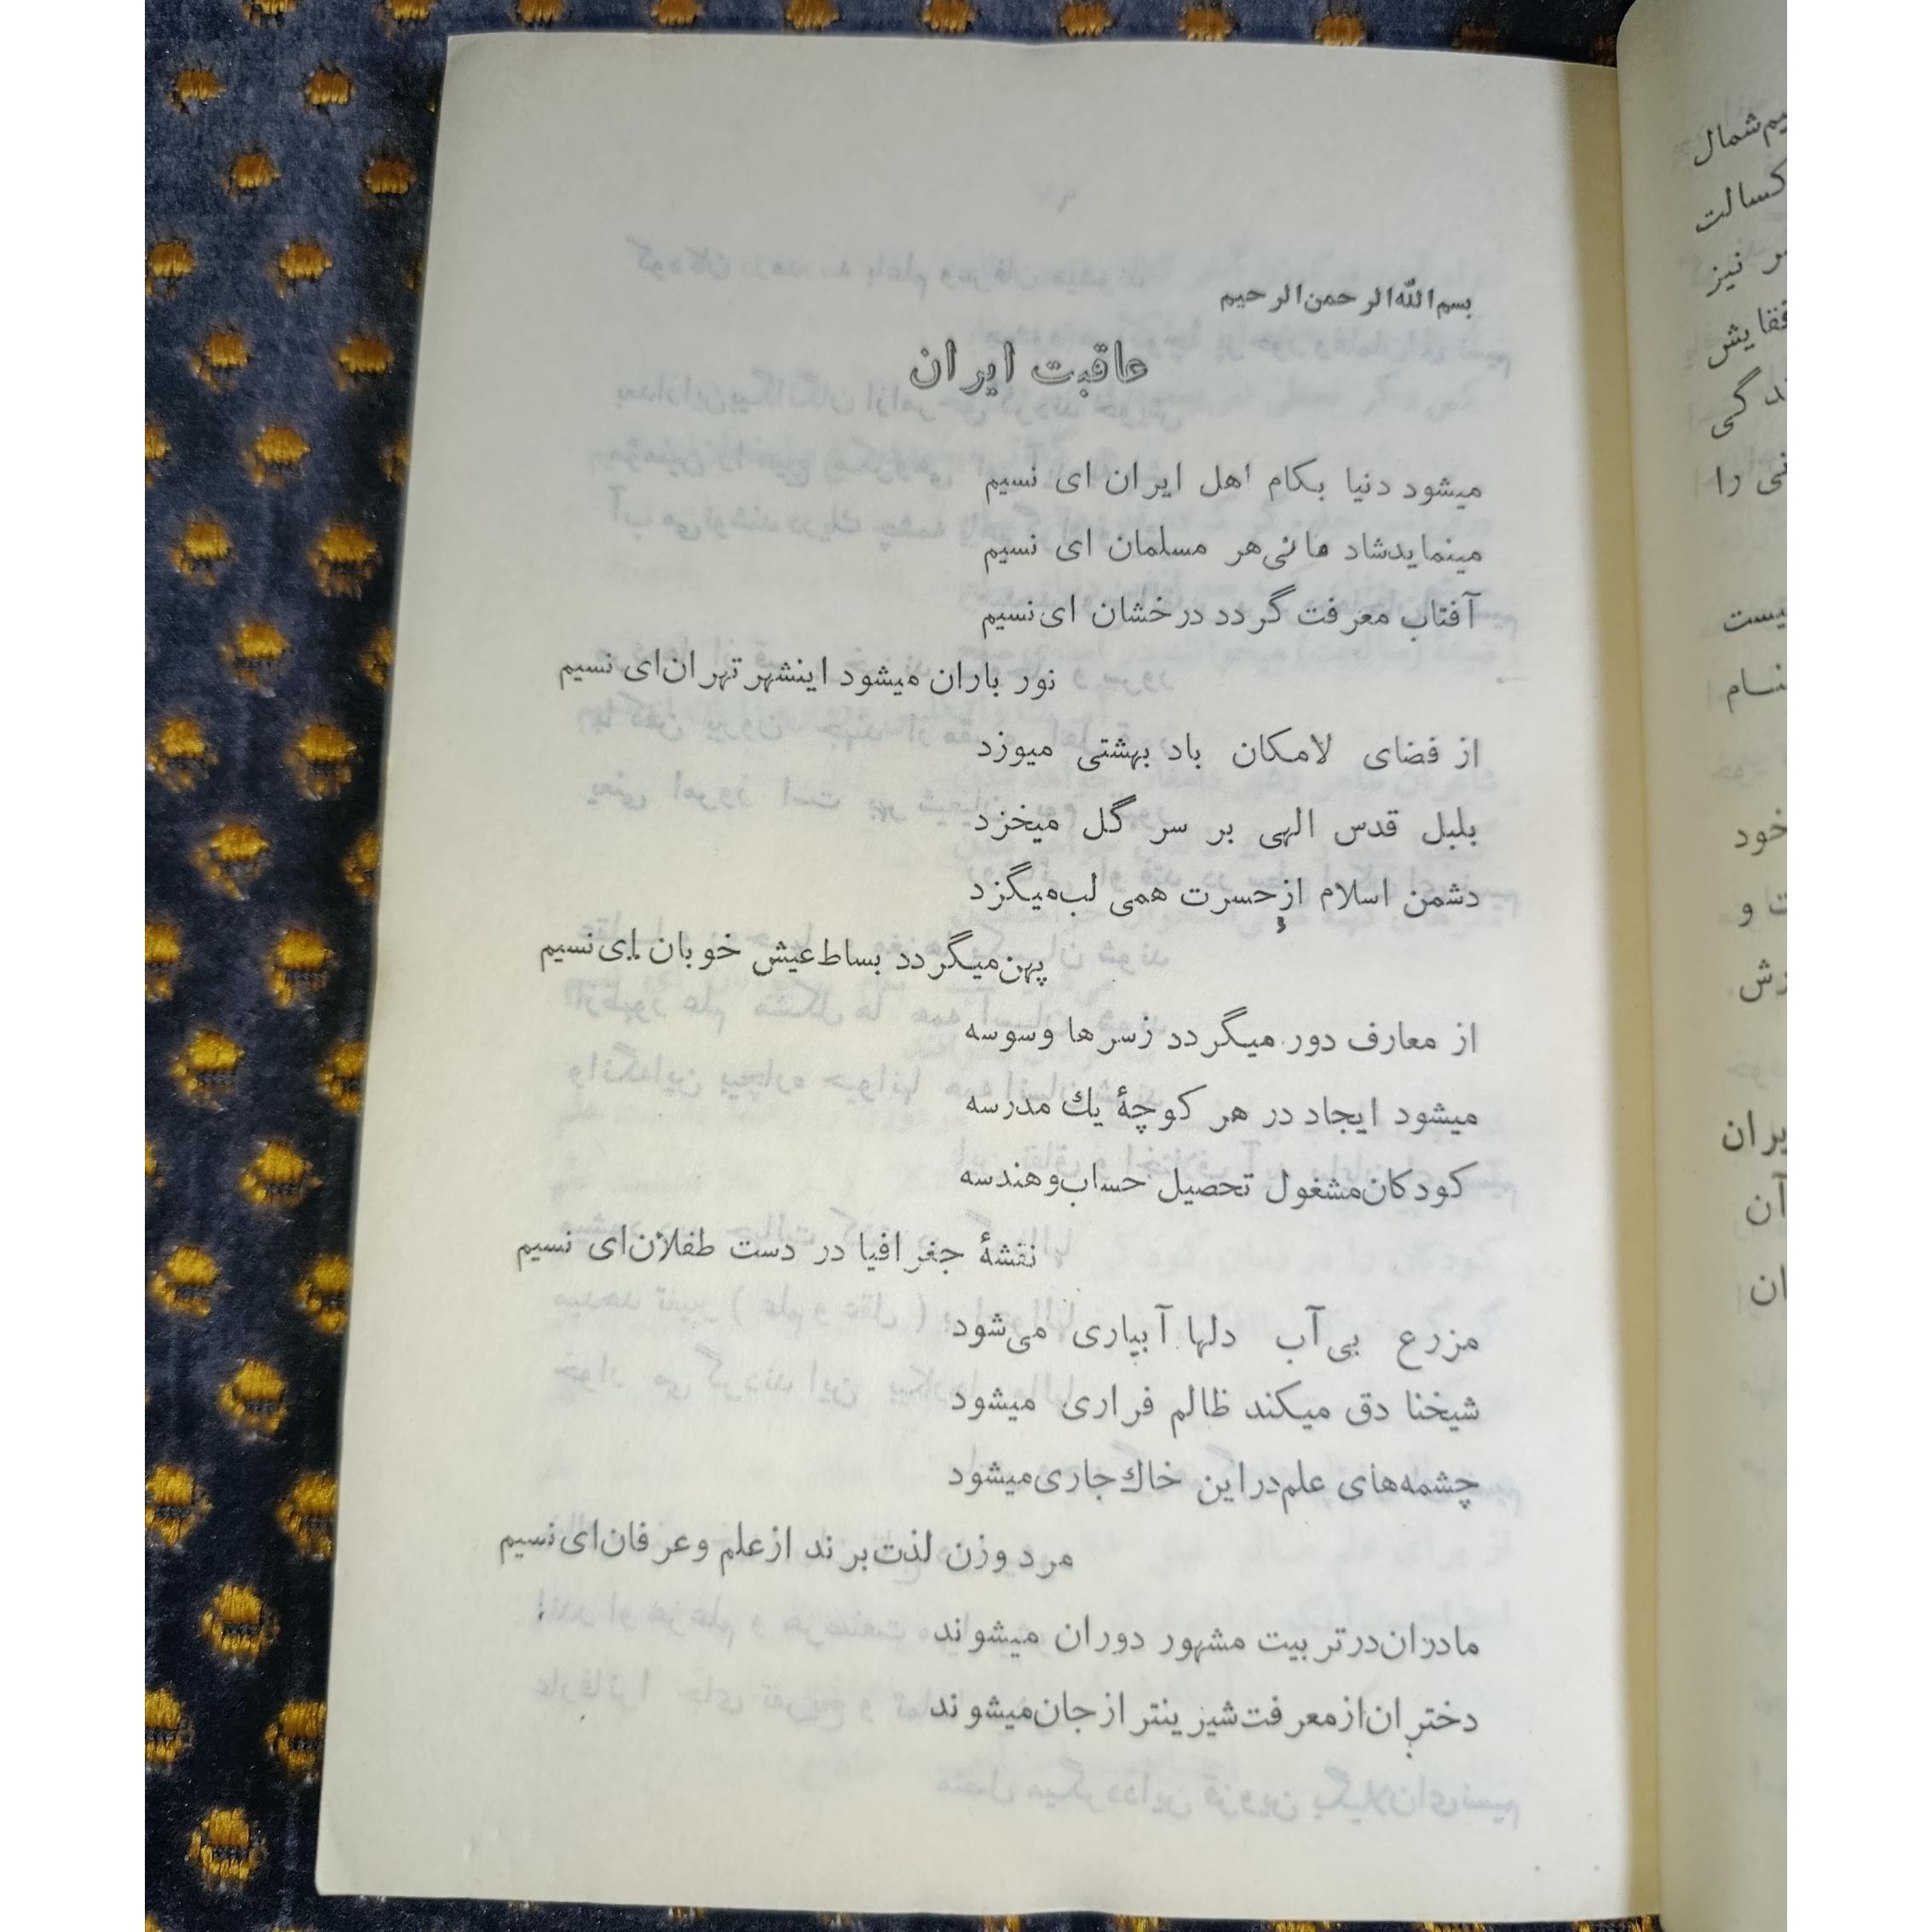 بسم الله الرحمن الرحیم
عاقبت ایران
میشود دنیا بکام اهل ایران ای نسیم
مینماید شادمانی هر مسلمان ای نسیم
آفتاب معرفت گردد درخشان ای نسیم
نور باران میشود اینشهر تهران ای نسیم
از فضای لامکان باد بهشتی میوزد
بلبل قدس الهی بر سر گل میخزد
دشمن اسلام از حسرت همی لب میگزد
پهن میگردد بساط عیش خوبان ای نسیم
از معارف دور میگردد زسرها وسوسه
میشود ایجاد در هر کوچهٔ یك مدرسه
کودکان مشغول تحصیل حساب و هندسه
نقشهٔ جغرافیا در دست طفلان ای نسیم
مزرع بی آب دلها آبیاری می شود
شیخنا دق میکند ظالم فراری میشود
چشمه های علم در این خاك جاری میشود
مرد وزن لذت برند از علم وعرفان ای نسیم
مادران در تربیت مشهور دوران میشوند
دختران از معرفت شیرینتر از جان میشوند
یم شمال
کسالت
ر نیز
فقایش
ندگی
نی را
یست
خود
ت و
رش
یران
آن
ان